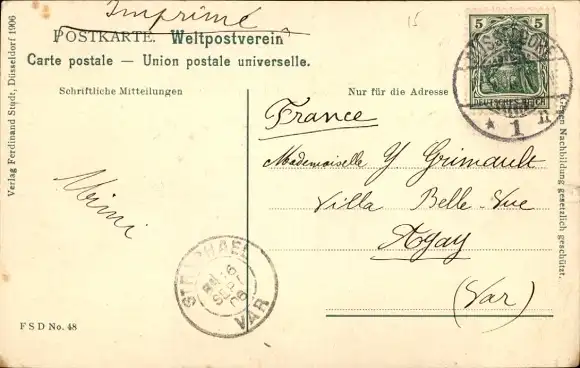 Imprimé
15
POSTKARTE. Weltpostverein
Carte postale — Union postale universelle.
Schriftliche Mitteilungen
Nur für die Adresse
5 5
DEUTSCHES REICH
DÜSSELDORF
* 1 n
France
Mademoiselle Y Grimault
Villa Belle-Vue
Agay
(Var)
Mimi
ST RAPHAEL
6
SEPT
06
VAR
F S D No. 48
Verlag Ferdinand Studt, Düsseldorf 1906
Nachbildung gesetzlich geschützt.